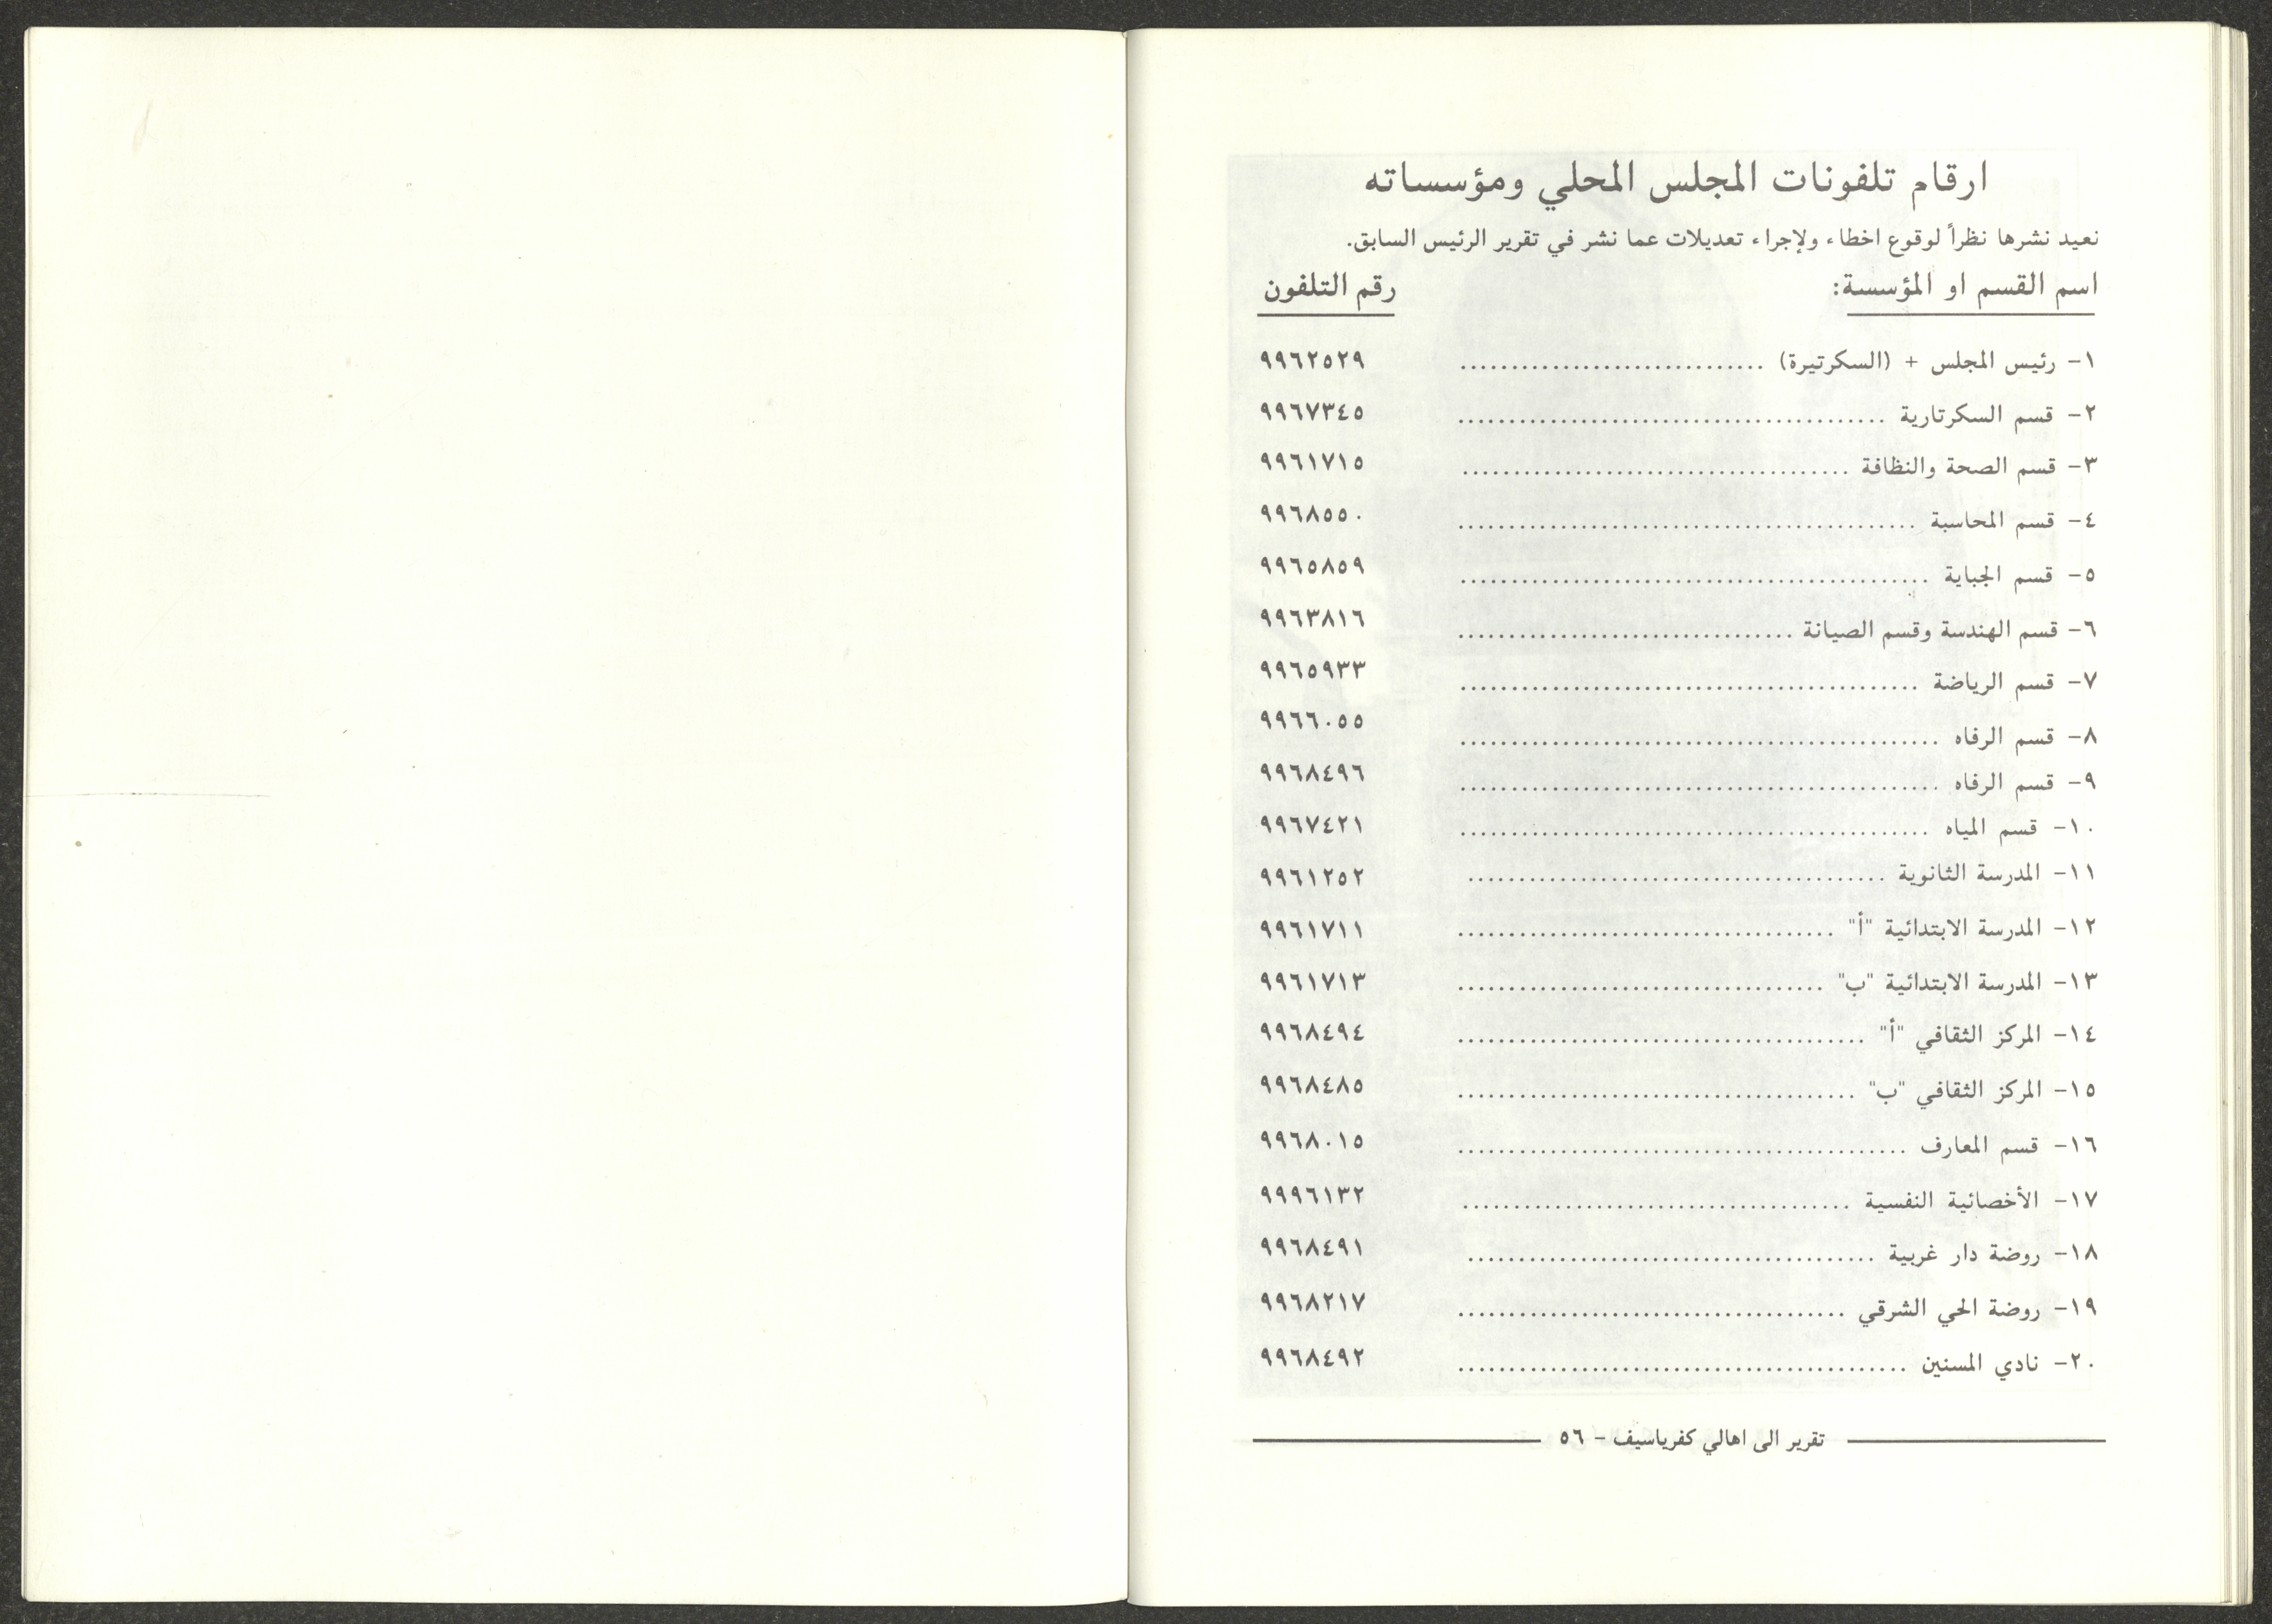 ارقام تلفونات المجلس المحلي ومؤسساته
نعيد نشرها نظراً لوقوع اخطاء ولإجراء تعديلات عما نشر في تقرير الرئيس السابق.
اسم القسم او المؤسسة: رقم التلفون
١- رئيس المجلس + (السكرتيرة) .............................. ٩٩٦٢٥٢٩
٢- قسم السكرتارية .......................................... ٩٩٦٧٣٤٥
٣- قسم الصحة والنظافة ...................................... ٩٩٦١٧١٥
٤- قسم المحاسبة ............................................. ٩٩٦٨٥٥٠
٥- قسم الجباية .............................................. ٩٩٦٥٨٥٩
٦- قسم الهندسة وقسم الصيانة ................................. ٩٩٦٣٨١٦
٧- قسم الرياضة ............................................. ٩٩٦٥٩٣٣
٨- قسم الرفاه ............................................... ٩٩٦٦٠٥٥
٩- قسم الرفاه ............................................... ٩٩٦٨٤٩٦
١٠- قسم المياه .............................................. ٩٩٦٧٤٢١
١١- المدرسة الثانوية ......................................... ٩٩٦١٢٥٢
١٢- المدرسة الابتدائية "أ" ..................................... ٩٩٦١٧١١
١٣- المدرسة الابتدائية "ب" .................................... ٩٩٦١٧١٣
١٤- المركز الثقافي "أ" ........................................ ٩٩٦٨٤٩٤
١٥- المركز الثقافي "ب" ....................................... ٩٩٦٨٤٨٥
١٦- قسم المعارف ............................................ ٩٩٦٨٠١٥
١٧- الأخصائية النفسية ...................................... ٩٩٩٦١٣٢
١٨- روضة دار غربية ........................................ ٩٩٦٨٤٩١
١٩- روضة الحي الشرقي ...................................... ٩٩٦٨٢١٧
٢٠- نادي المسنين ............................................ ٩٩٦٨٤٩٢
تقرير الى اهالي كفرياسيف - ٥٦